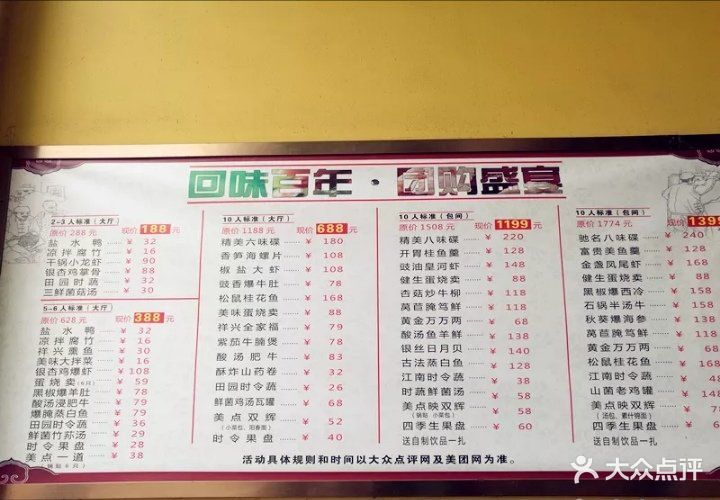 回味百年·团购盛宴
2-3人标准（大厅）
原价 288 元 现价 188 元
盐水鸭 ¥ 32
凉拌腐竹 ¥ 16
干锅小龙虾 ¥ 90
银杏鸡掌骨 ¥ 88
田园时蔬 ¥ 32
三鲜菌菇汤 ¥ 30
5-6人标准（大厅）
原价 628 元 现价 388 元
盐水鸭 ¥ 32
凉拌腐竹 ¥ 16
祥兴熏鱼 ¥ 30
美味大拌菜 ¥ 16
银杏鸡爆虾 ¥ 108
蛋烧卖（6只） ¥ 59
黑椒爆羊肚 ¥ 78
酸汤浸肥牛 ¥ 79
爆腌蒸白鱼 ¥ 78
田园时令蔬 ¥ 36
鲜菌竹荪汤 ¥ 29
时令果盘 ¥ 28
美点一道 ¥ 38
10人标准（大厅）
原价 1188 元 现价 688 元
精美六味碟 ¥ 180
香笋海螺片 ¥ 108
椒盐大虾 ¥ 108
豉香爆牛肚 ¥ 78
松鼠桂花鱼 ¥ 108
美味蛋烧卖 ¥ 88
祥兴全家福 ¥ 79
紫茄牛腩煲 ¥ 78
酸汤肥牛 ¥ 83
酥炸山药卷 ¥ 32
田园时令蔬 ¥ 26
鲜菌鸡汤瓦罐 ¥ 68
美点双辉 ¥ 52
（小菜包、阳春面）
时令果盘 ¥ 40
10人标准（包间）
原价 1508 元 现价 1199 元
精美八味碟 ¥ 220
开胃桂鱼羹 ¥ 128
豉油皇河虾 ¥ 148
健生蛋烧卖 ¥ 88
杏菇炒牛柳 ¥ 118
莴苣腌笃鲜 ¥ 118
黄金万万两 ¥ 68
酸汤鱼羊鲜 ¥ 138
银丝日月贝 ¥ 140
古法蒸白鱼 ¥ 128
江南时令蔬 ¥ 38
时蔬鲜菌汤 ¥ 58
美点映双辉 ¥ 58
（锅贴 小菜包）
四季生果盘 ¥ 60
送自制饮品一扎
10人标准（包间）
原价 1774 元 现价 139
驰名八味碟 ¥ 240
富贵美鱼羹 ¥ 128
金盏凤尾虾 ¥ 168
健生蛋烧卖 ¥ 88
黑椒爆西冷 ¥ 158
石锅半汤牛 ¥ 158
秋葵爆海参 ¥ 138
莴苣腌笃鲜 ¥ 108
黄金万万两 ¥ 68
松鼠桂花鱼 ¥ 168
江南时令蔬 ¥ 48
山菌老鸡罐 ¥ 168
美点映双辉 ¥ 68
（汤包、素什锦面）
四季生果盘 ¥ 68
送自制饮品一扎
活动具体规则和时间以大众点评网及美团网为准。
大众点评